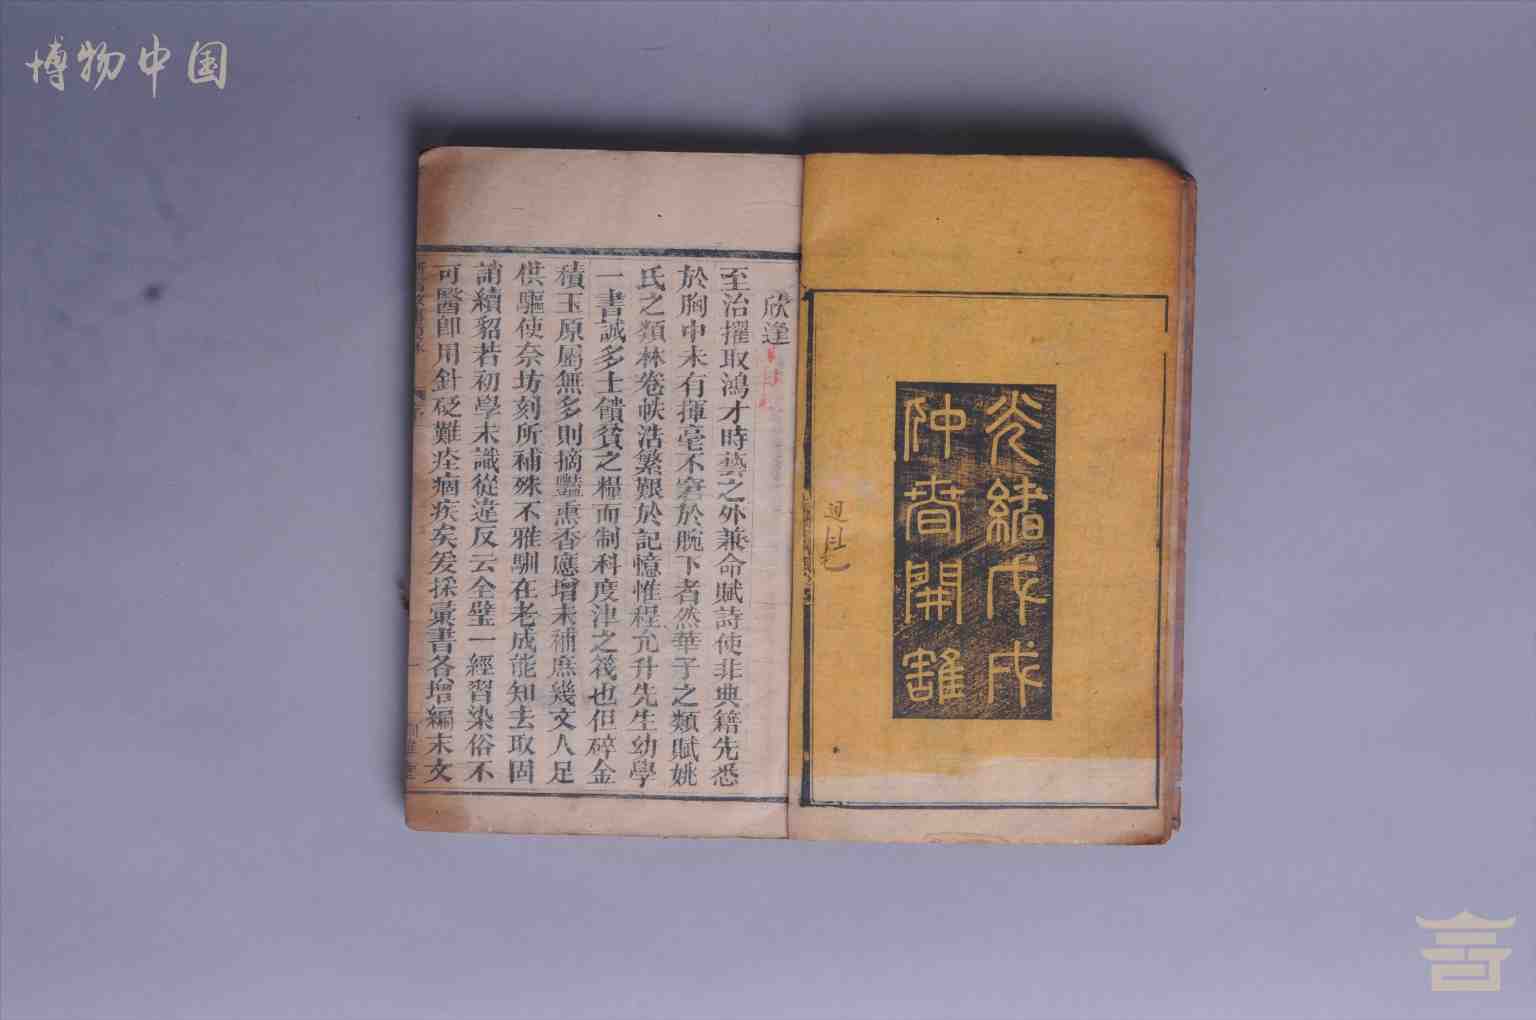 博物中国
光緒戊戌
仲春開雕
欣逢
至治擢取鴻才時藝之外兼命賦詩使非典籍先悉
於胸中未有揮毫不窘於腕下者然華子之類賦姚
氏之類林卷帙浩繁艱於記憶惟程允升先生幼學
一書誠多士饋貧之糧而制科度津之筏也但碎金
積玉原屬無多則摘豔熏香應增未補庶幾文人足
供驅使奈坊刻所補殊不雅馴在老成能知去取固
誚續貂若初學未識從違反云全璧一經習染俗不
可醫即用針砭難痊痼疾矣爰採彙書各增編末文